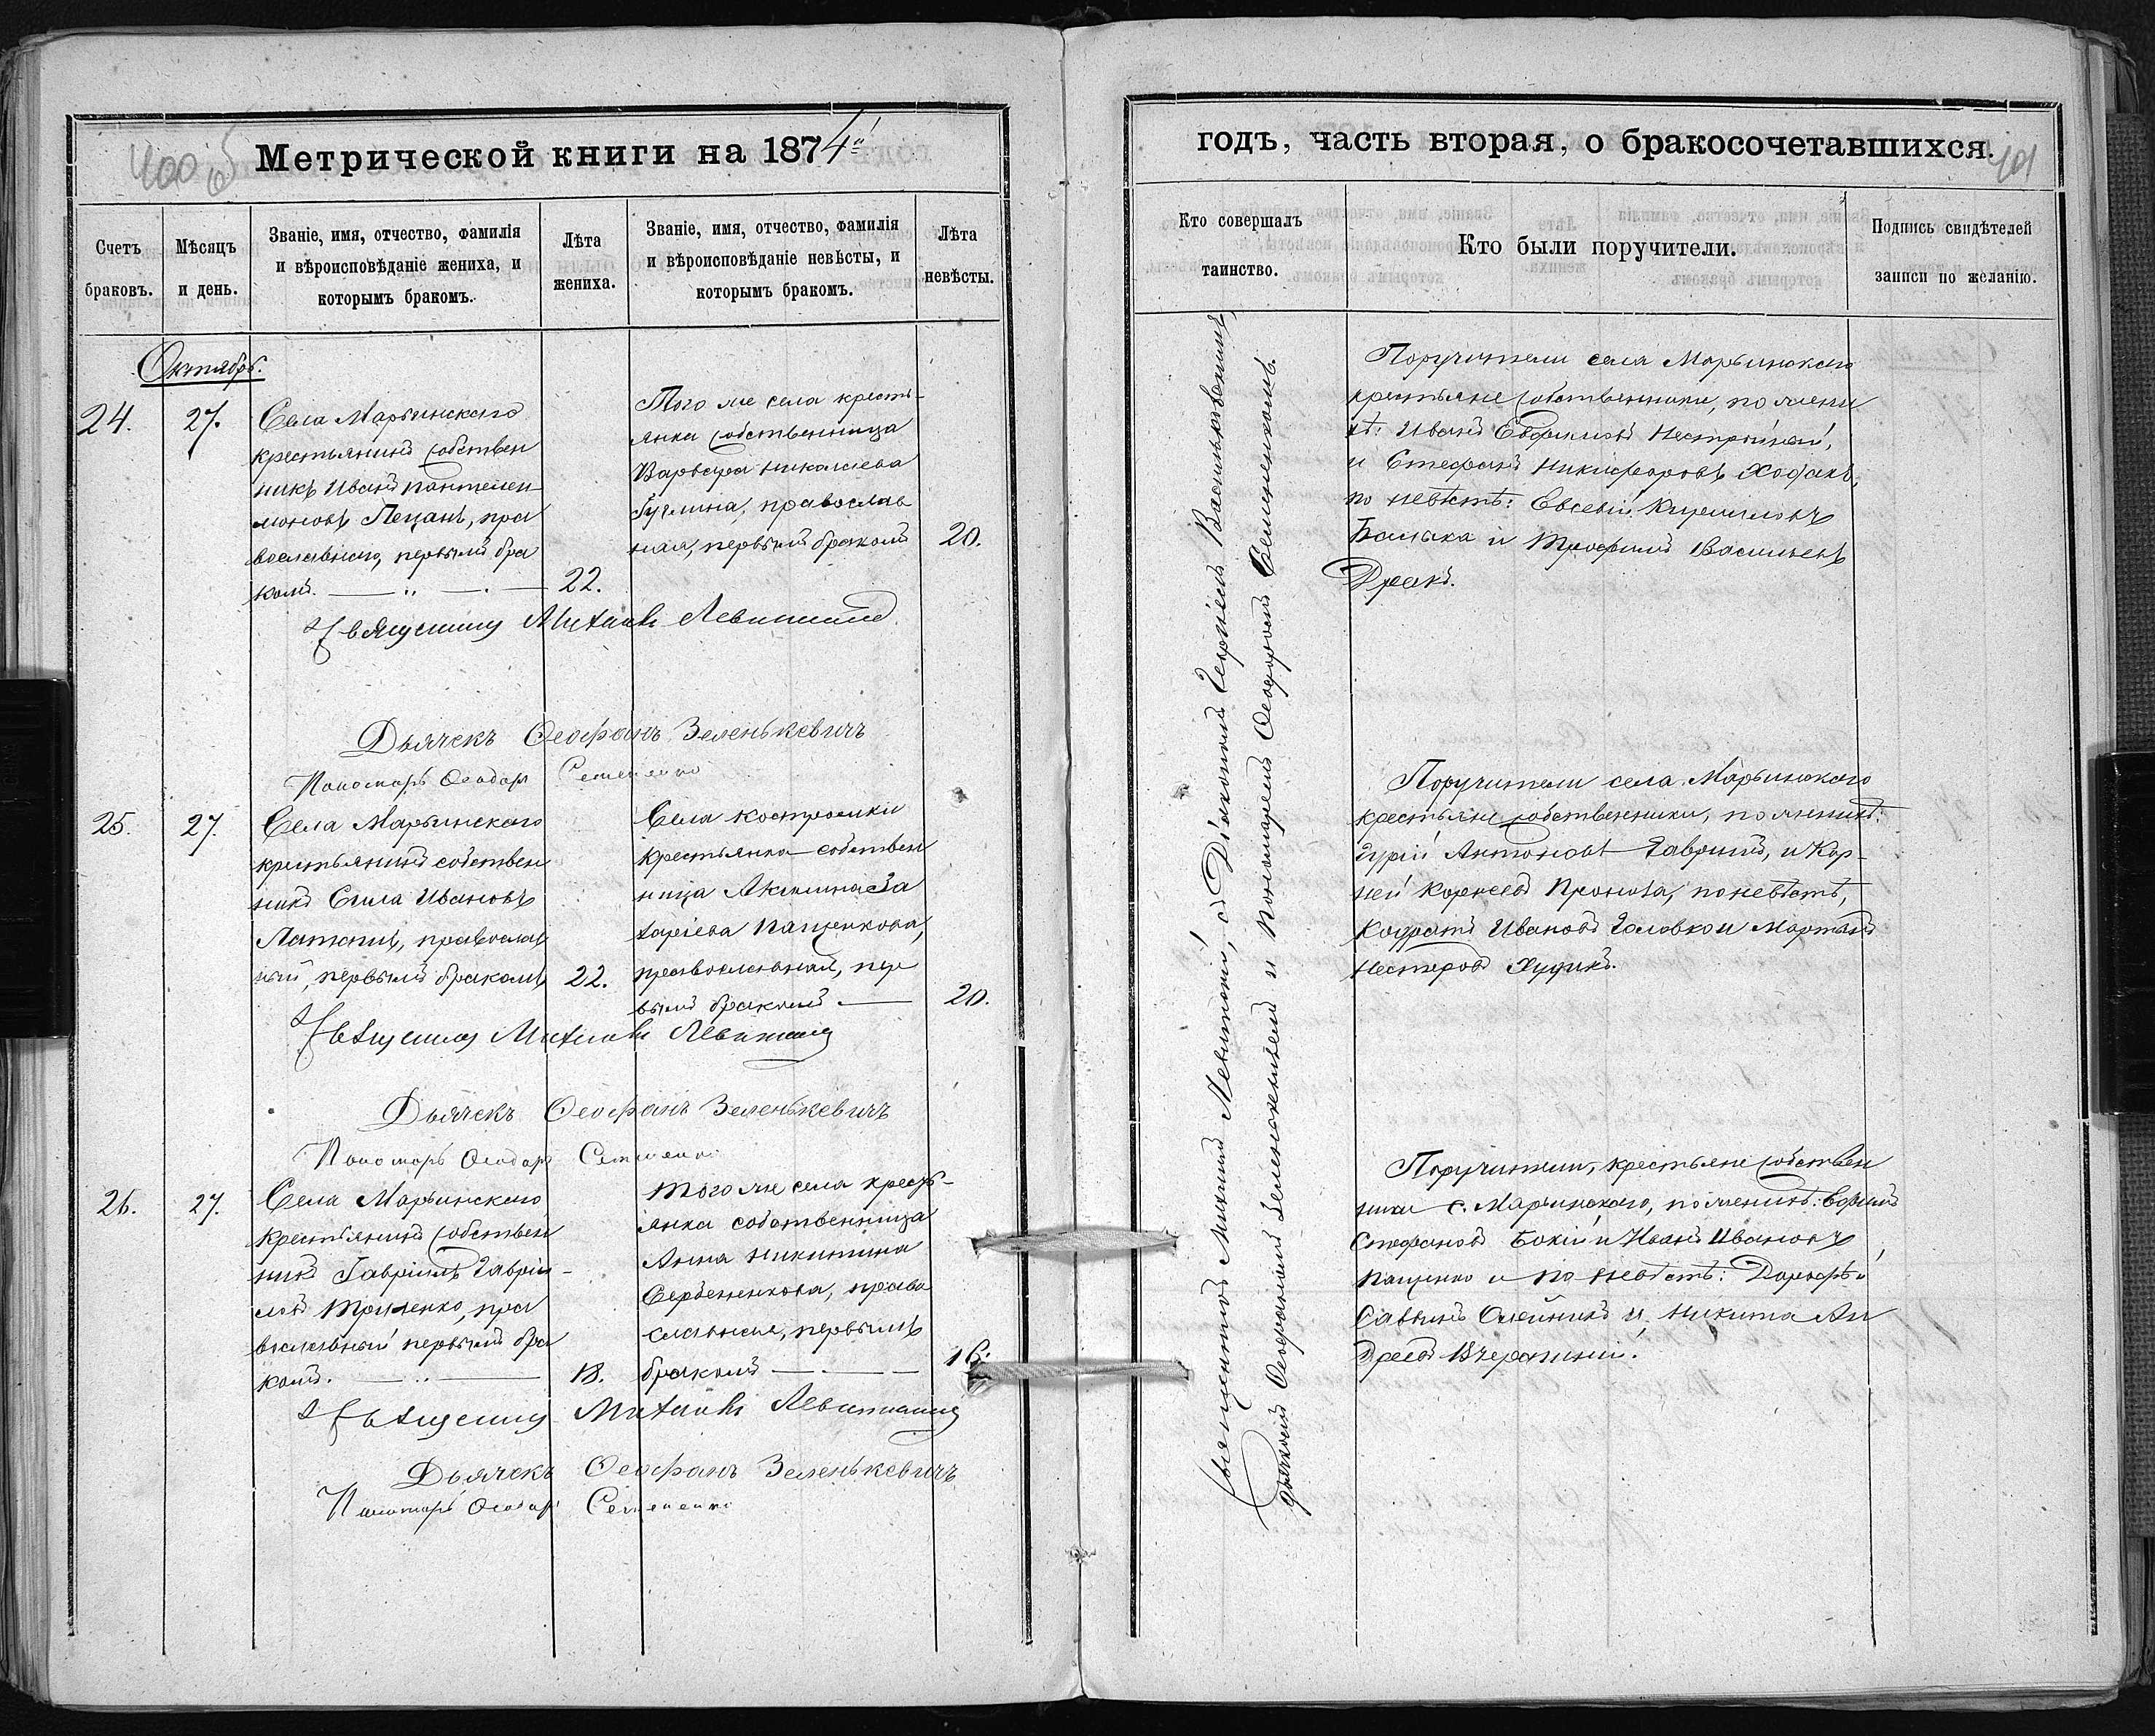 400 об
Метрической книги на 1874й
Счетъ браковъ.
Мѣсяцъ и день.
Званіе, имя, отчество, фамилія
и вѣроисповѣданіе жениха, и
которымъ бракомъ.
Лѣта
жениха.
Званіе, имя, отчество, фамилія
и вѣроисповѣданіе невѣсты, и
которымъ бракомъ.
Лѣта
невѣсты.
Октябрь.
24.
27.
Села Марьинскаго
крестьянинъ собствен
никъ Иванъ Пантелеи
моновъ Пецанъ, пра
вославнаго, первымъ бра
комъ.
22.
Того же села кресть-
янка собственница
Варвара Николаева
православ
ная, первымъ бракомъ
20.
Священникъ Михаилъ Левитскій
Дьячекъ Ѳеофанъ Зеленькевичъ
Пономарь Ѳеодоръ Семененко
25.
27.
Села Марьинскаго
крестьянинъ собствен
никъ Сила Ивановъ
православ
ный, первымъ бракомъ
22.
Села Костромки
крестьянка собствен
ница Акилина За
харіева Пащенкова,
православная, пер
вымъ бракомъ
20.
Священникъ Михаилъ Левитскій
Дьячекъ Ѳеофанъ Зеленькевичъ
Пономарь Ѳеодоръ Семененко
26.
27.
Села Марьинскаго
крестьянинъ собствен
никъ Гавріилъ Гавріи-
ловъ пра
вославный первымъ бра
комъ.
18.
Того же села кресть-
янка собственница
Анна Никитина
Сербененкова, право
славная, первымъ
бракомъ
16.
Священникъ Михаилъ Левитскій
Дьячекъ Ѳеофанъ Зеленькевичъ
Пономарь Ѳеодоръ Семененко
401
годъ, часть вторая, о бракосочетавшихся.
Кто совершалъ
таинство.
Кто были поручители.
Подпись свидѣтелей
записи по желанію.
Священникъ Михаилъ Левитскій, съ Діакономъ Георгіемъ Васильковскимъ,
дьячкомъ Ѳеофаномъ Зеленкевичемъ и Пономаремъ Ѳеодоромъ Семененкомъ.
Поручители села Марьинскаго
крестьяне собственники, по жени
хѣ: Иванъ Евфимовъ
и Стефанъ Никифоровъ Ходакъ,
по невѣстѣ: Евсевій Кирилловъ
и Трофимъ Васильевъ
Дракъ.
Поручители села Марьинскаго
крестьяне собственники, по женихѣ:
Гурій Антоновъ и Кор-
ней Корнеевъ Проноза, по невѣстѣ,
Кодратъ Ивановъ Головко и Мартынъ
Нестеровъ Худикъ.
Поручители, крестьяне собствен
ники с. Марьинскаго, по женихѣ:
Стефановъ Бокій и Иванъ Ивановъ
Пащенко и по невѣстѣ:
Саввинъ Олейникъ и Никита Ан
дреевъ